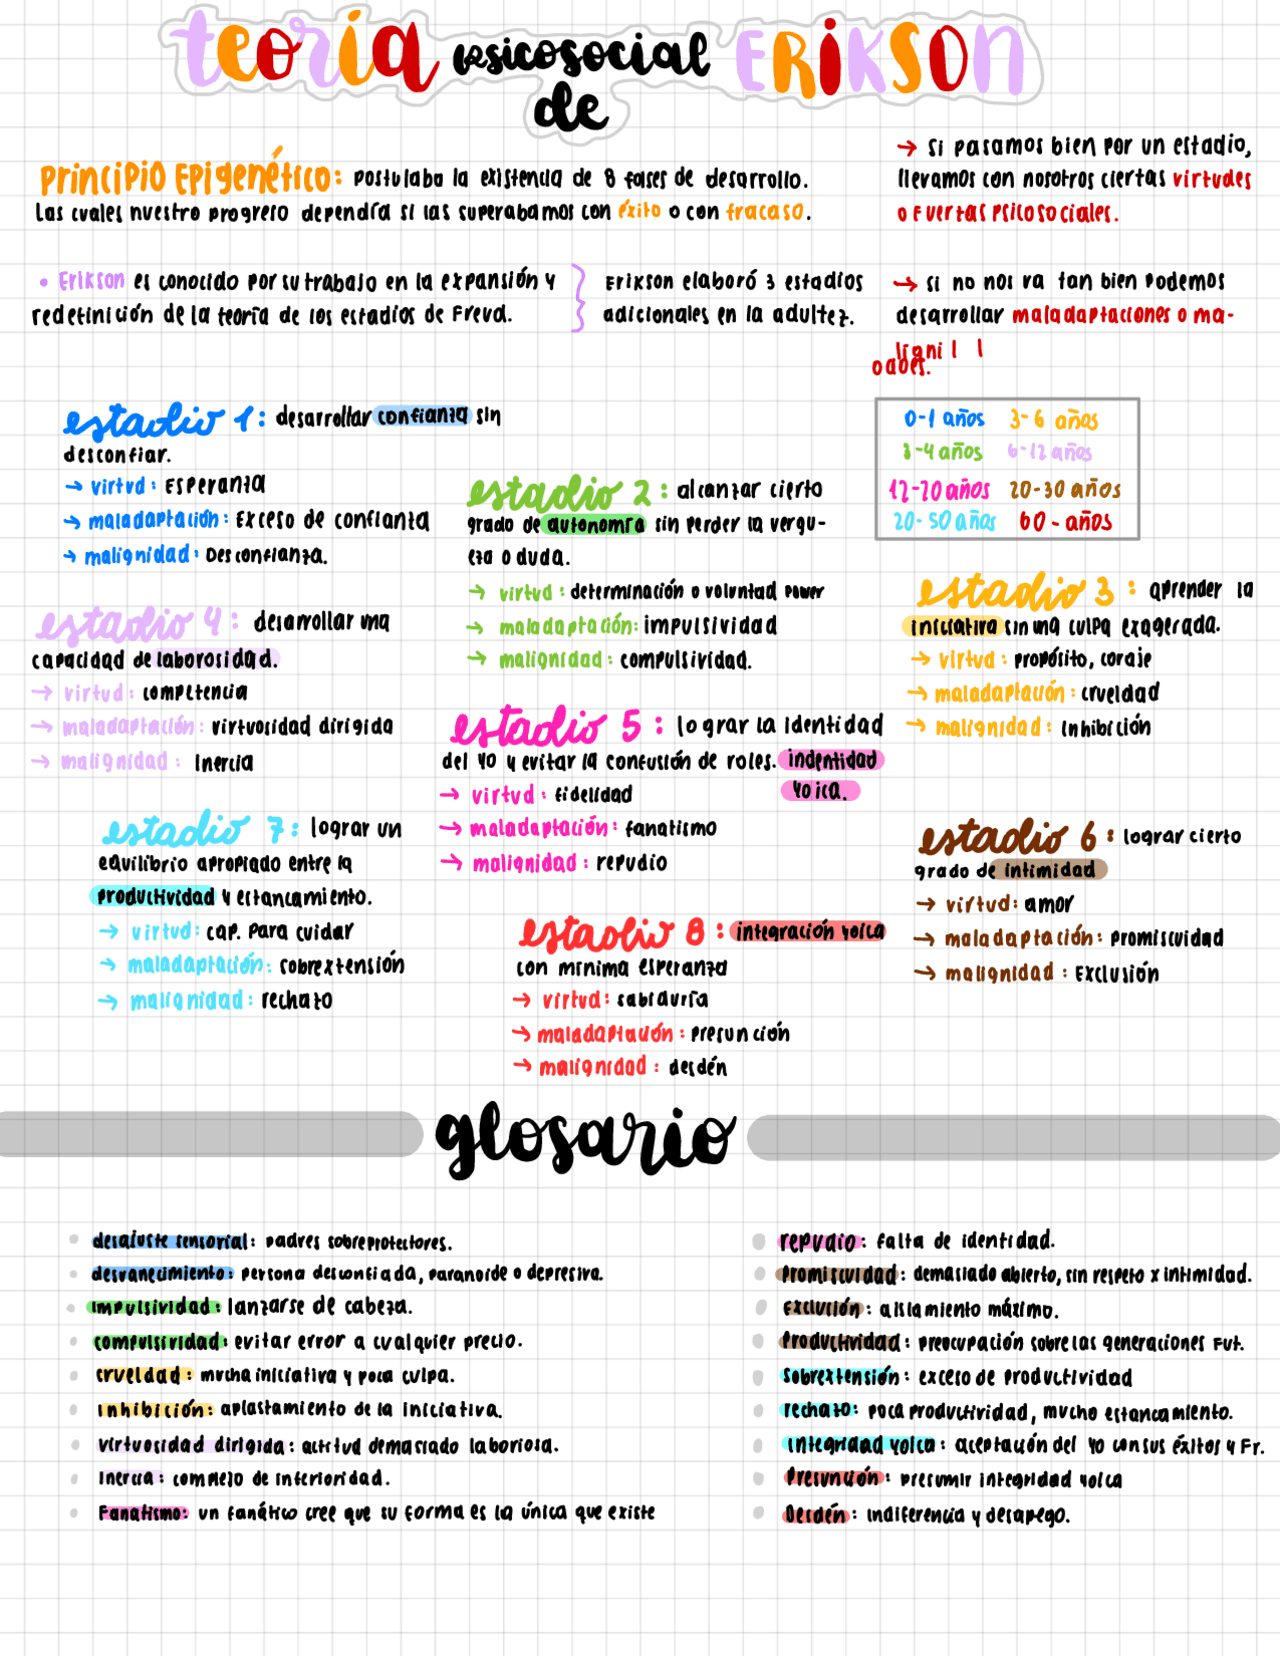 teoría psicosocial de ERIKSON
Principio Epigenético: postulaba la existencia de 8 fases de desarrollo.
Las cuales nuestro progreso dependría si las superabamos con éxito o con fracaso.
→ Si pasamos bien por un estadio,
llevamos con nosotros ciertas virtudes
o fuertas psicosociales.
• Erikson es conocido por su trabajo en la expansión y
redefinición de la teoría de los estadios de Freud.
Erikson elaboró 3 estadios
adicionales en la adultez.
→ si no nos va tan bien podemos
desarrollar maladaptaciones o ma-
ligni
dades.
0-1 años 3-6 años
3-4 años 6-12 años
12-20 años 20-30 años
20-50 años 60- años
estadio 1: desarrollar confianza sin
desconfiar.
→ virtud: Esperanza
→ maladaptación: Exceso de confianza
→ malignidad: Desconfianza.
estadio 2: alcanzar cierto
grado de autonomía sin perder la vergu-
eza o duda.
→ virtud: determinación o voluntad power
→ maladaptación: impulsividad
→ malignidad: compulsividad.
estadio 3: aprender la
iniciativa sin una culpa exagerada.
→ virtud: propósito, coraje
→ maladaptación: crueldad
→ malignidad: Inhibición
estadio 4: desarrollar una
capacidad de laborosidad.
→ virtud: competencia
→ maladaptación: virtuosidad dirigida
→ malignidad: Inercia
estadio 5: lograr la Identidad
del yo y evitar la confusión de roles. indentidad
yoica.
→ virtud: fidelidad
→ maladaptación: fanatismo
→ malignidad: repudio
estadio 6: lograr cierto
grado de intimidad
→ virtud: amor
→ maladaptación: promiscuidad
→ malignidad: Exclusión
estadio 7: lograr un
equilibrio apropiado entre la
productividad y estancamiento.
→ virtud: cap. para cuidar
→ maladaptación: sobrextensión
→ malignidad: rechazo
estadio 8: integración yoica
con mínima esperanza
→ virtud: sabiduría
→ maladaptación: presunción
→ malignidad: desdén
glosario
• desajuste sensorial: padres sobreprotectores.
• desvanecimiento: persona desconfiada, paranoide o depresiva.
• impulsividad: lanzarse de cabeza.
• compulsividad: evitar error a cualquier precio.
• crueldad: mucha iniciativa y poca culpa.
• inhibición: aplastamiento de la iniciativa.
• virtuosidad dirigida: actitud demasiado laboriosa.
• Inercia: complejo de inferioridad.
• Fanatismo: un fanático cree que su forma es la única que existe
• repudio: falta de identidad.
• Promiscuidad: demasiado abierto, sin respeto x intimidad.
• Exclusión: aislamiento máximo.
• Productividad: preocupación sobre las generaciones Fut.
• Sobrextensión: exceso de productividad
• rechazo: poca productividad, mucho estancamiento.
• Integridad yoica: aceptación del yo con sus éxitos y Fr.
• Presunción: presumir integridad yoica
• Desdén: indiferencia y desapego.